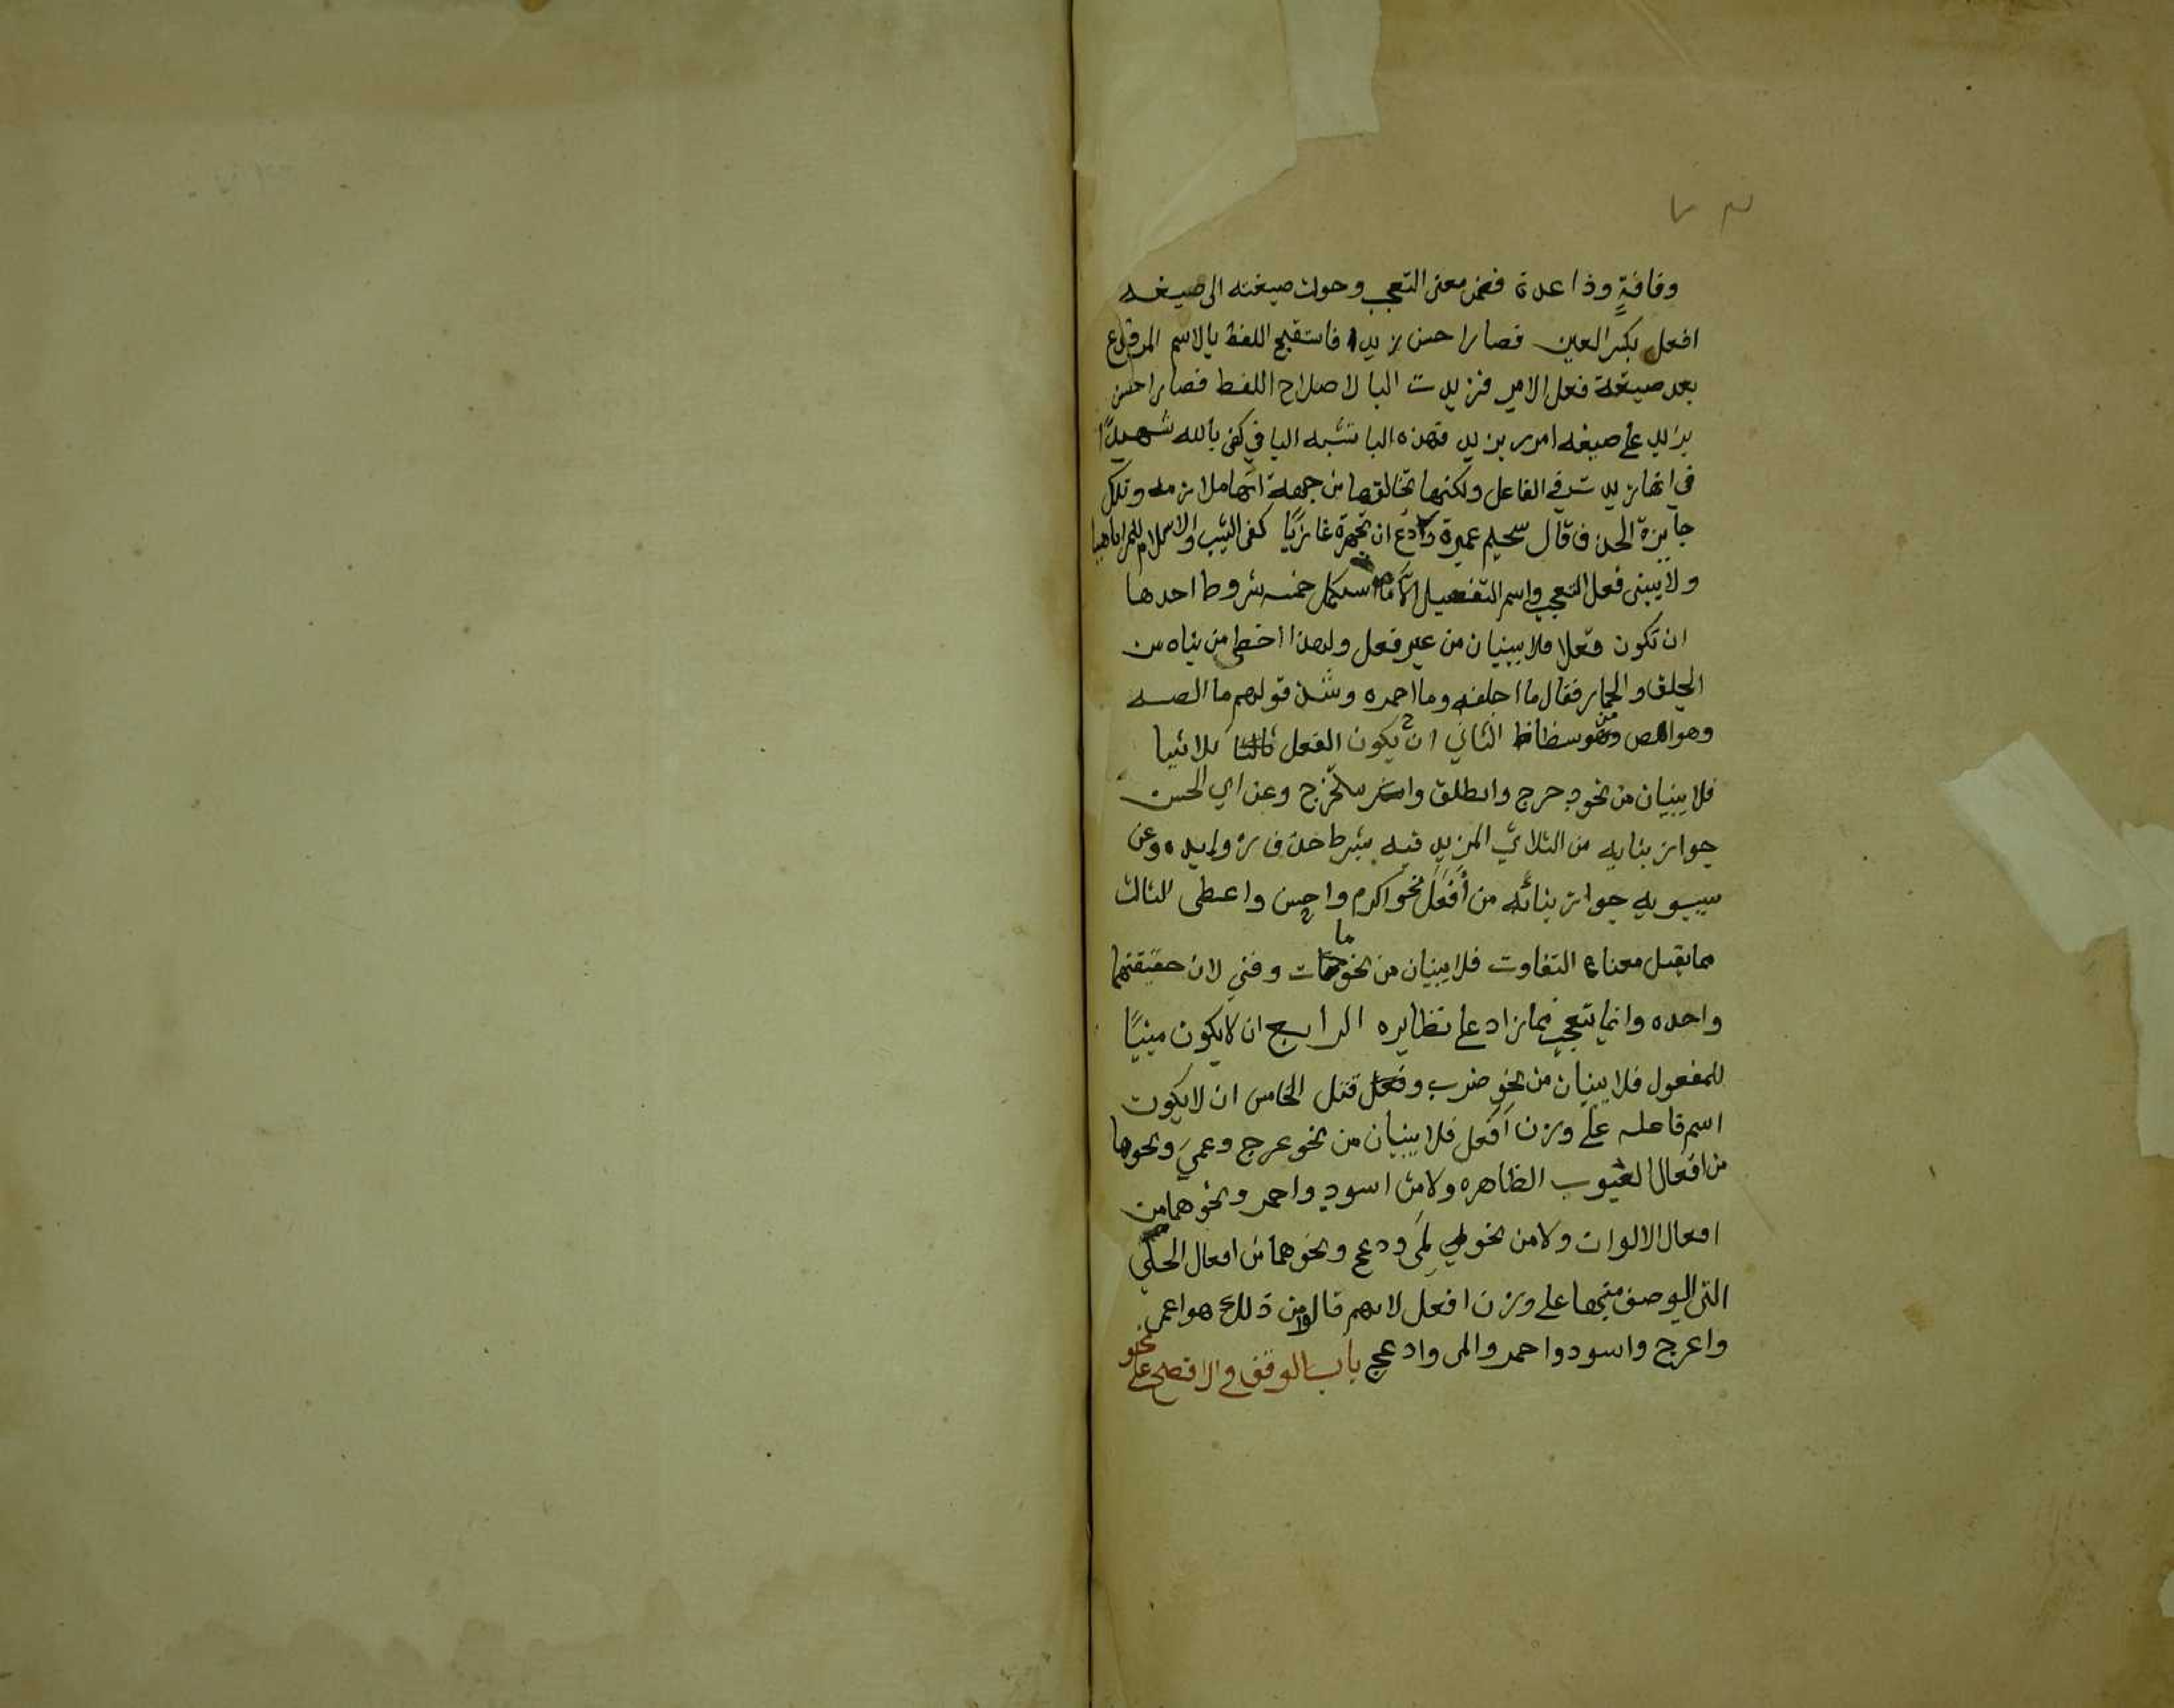 وفاقةٍ وذا عدة فضمن معنى التعجب وحولت صيغته الى صيغه
افعل بكسر العين فصار احسن زيد فاستقبح اللفظ بالاسم المرفوع
بعد صيغة فعل الامر فزيدت البا لاصلاح اللفظ فصار احسن
بزيد على صيغه امرر بزيد فهذه البا تشبه البا في كفى بالله شهيدًا
في انها زيدت في الفاعل ولكنها تخالفها من جهة انها ملازمه وتلك
جايزة الحذف قال سحيم عميرة ودع ان تجهزت غازيًا كفى الشيب والاسلام للمرء ناهيا
ولا يبنى فعل التعجب واسم التفضيل الا مما استكمل خمسه شروط احدها
ان تكون فعلا فلا يبنيان من غير فعل ولهذا اخطى من بناه من
الجلف والحمار فقال ما اجلفه وما احمره وشذ قولهم ما الصه
وهو الص من شظاظ الثاني ان يكون الفعل ثلاثيا
فلا يبنيان من نحو دحرج وانطلق واستخرج وعن ابي الحسن
جواز بنايه من الثلاثي المزيد فيه بشرط حذف زوايده وعن
سيبويه جواز بنائه من أَفعَلَ نحو اكرم واحسن واعطى الثالث
مما يقبل معناه التفاوت فلا يبنيان من نحو مات وفني لان حقيقتهما
واحده وانما يتعجب مما زاد على نظايره الرابع ان لا يكون مبنيًا
للمفعول فلا يبنيان من نحو ضرب وقتل الخامس ان لا يكون
اسم فاعله على وزن أفعل فلا يبنيان من نحو عرج وعمي ونحوها
من افعال العيوب الظاهره ولا من اسود واحمر ونحوهما من
افعال الالوان ولا من نحو لمي ودعج ونحوهما من افعال الحلي
التي الوصف منها على وزن افعل لانهم قالوا من ذلك هو اعمى
واعرج واسود واحمر والمى وادعج باب الوقف في الافصح على نحو